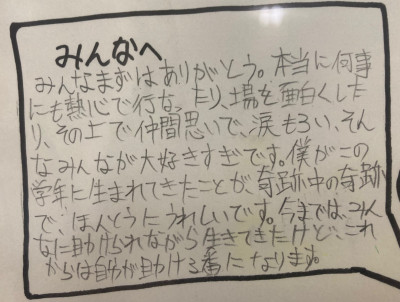 みんなへ
みんなまずはありがとう。本当に何事
にも熱心で行なったり、場を面白くした
り、その上で仲間思いで、涙もろい、そん
なみんなが大好きすぎです。僕がこの
学年に生まれてきたことが、奇跡中の奇跡
で、ほんとうにうれしいです。今までは、みん
なに助けられながら生きてきたけど、これ
からは自分が助ける番になります。